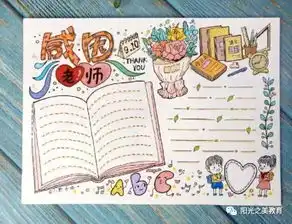 感恩
9.10
老师
THANK
YOU
ABC
阳光之美教育